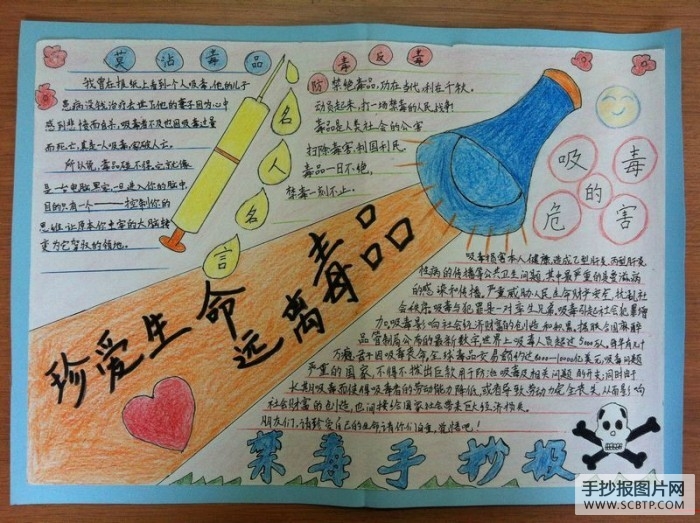 莫沾毒品
防毒反毒
我曾在报纸上看到一个人吸毒,他的儿子
患病没钱治疗去世了,他的妻子因为心中
感到悲
而死亡,真是一人吸毒,家破人亡。
所以说,毒品碰不得,它就像
是一台电脑黑客,一旦进入你的脑中,
目的只有一个——控制你的
思维,让原本你主宰的大脑转
变为它掌权的领地。
名人名言
禁绝毒品,功在当代,利在千秋。
动员起来,打一场禁毒的人民战争
毒品是人类社会的公害
扫除毒害,利国利民。
毒品一日不绝,
禁毒一刻不止。
吸毒的危害
珍爱生命
远离毒品
吸毒损害本人健康,造成乙型肝炎、丙型肝炎
性病的传播等公共卫生问题,其中最严重的是爱滋病
的感染和传播。严重威胁人民生命财产安全,扰乱社
会秩序。吸毒与犯罪是一对孪生兄弟,吸毒引起社会犯罪增
加。吸毒影响社会经济财富的创造和积累。据联合国麻醉
品管制局公布的最新数字,世界上吸毒人员超过
严重的国家,不得不拨出巨款用于防治吸毒及相关问题的开支;同时由于
长期吸毒而使得吸毒者的劳动能力降低,或者导致劳动力完全丧失,从而影响
社会财富的创造,也间接给国家社会带来巨大经济损失。
朋友们,请珍爱自己的生命
禁毒手抄报
手抄报图片网
WWW.SCBTP.COM